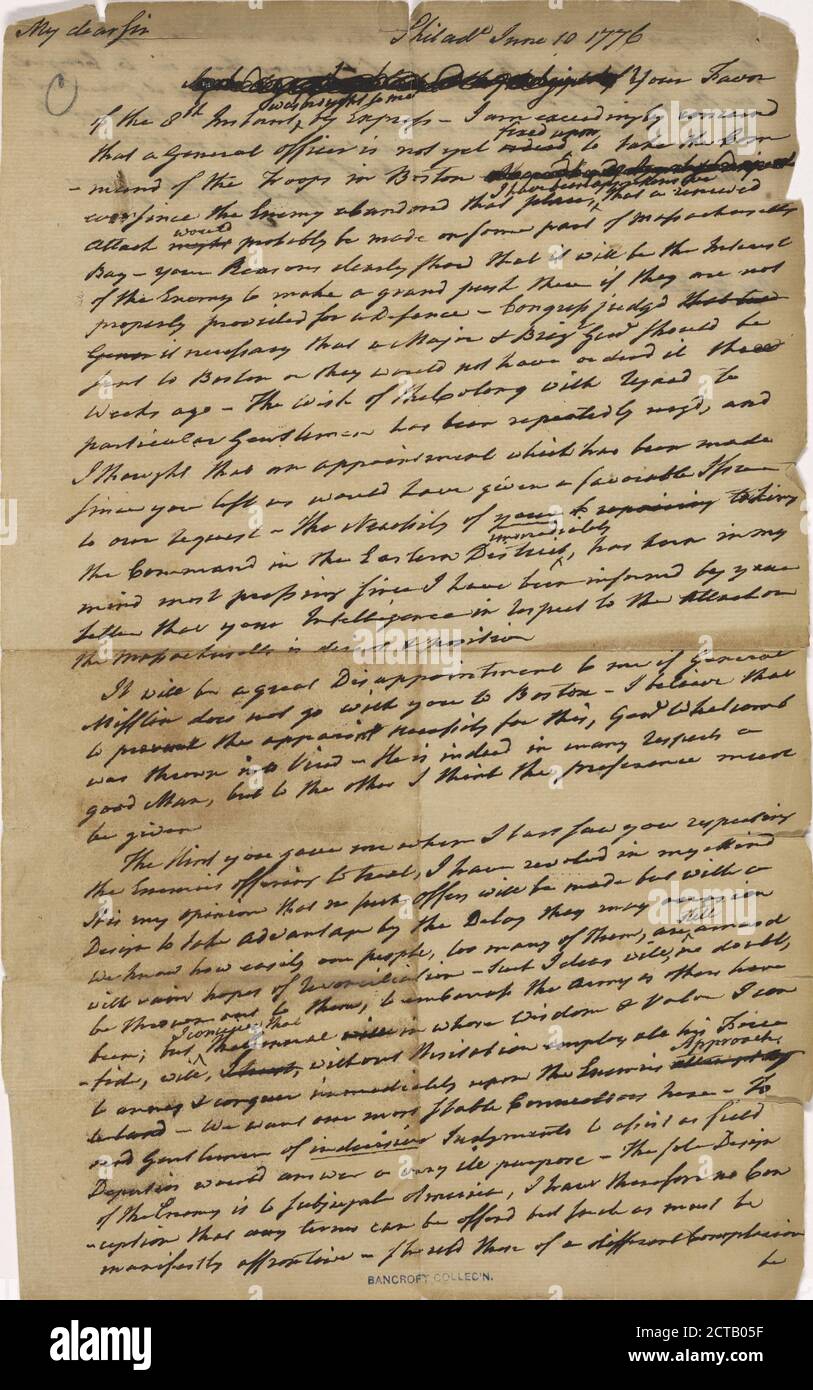 My dear Sir
Philadª June 10 1776
C
Your Favor
was brought to me
of the 8th Instant, by Express - I am exceedingly concernd
fixed upon
that a General officer is not yet ordered to take the Com
-mand of the Troops in Boston
I have been apprehensive
ever since the Enemy abandoned that place, that a renewed
would
Attack might probably be made on some part of Massachusetts
Bay - your Reasons clearly show that it will be the Interest
of the Enemy to make a grand push there if they are not
properly provided for a Defence - Congress judgd that two
Gener it necessary that a Major & Brigr Genl should be
sent to Boston or they would not have orderd it three
Weeks ago - The wish of the Colony with regard to
particular Gentlemen has been repeatedly urgd, and
I thought that an appointment which has been made
since you left us would have given a favorable Issue
to our request - The Necessity of your & repairing taking
immediately
the Command in the Eastern District, has been in my
mind most pressing since I have been informed by your
Letter that your Intelligence in respect to the Attack on
the Massachusetts is direct & positive
It will be a great Disappointment to me if General
Mifflin does not go with you to Boston - I believe that
to prevent the apparent necessity for this, Genl Whetcomb
was thrown into View - He is indeed in many respects a
good Man, but to the other I think the preference must
be given
The Hint you gave me when I last saw you respecting
the Enemies offering to treat, I have revolved in my Mind
It is my opinion that no such offers will be made but with a
Design to take Advantage by the Delay they may occasion
We know how easily our people, too many of them, are
still
amused
with vain hopes of reconciliation - Such Ideas will, no doubt,
be thrown out to them, to embarrass the Army as others have
I conceive that
been; but the General in whose Wisdom & Valor I con
-fide, will, I trust, without Hesitation employ all his Force
Approach.
to annoy & conquer immediately upon the Enemies attempt to
to land - We want our most stable Connections here - To
send Gentlemen of indecisive Judgments to assist as field
Deputies would answer a very ill purpose - The sole Design
of the Enemy is to subjugate America, I have therefore no Con
-ception that any terms can be offerd but such as must be
manifestly affrontive - should those of a different Complexion
be
BANCROFT COLLEC'N.
alamy
Image ID: 2CTB05F
www.alamy.com